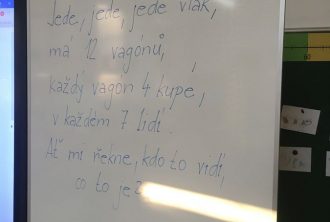 Jede, jede, jede vlak,
má 12 vagónů,
každý vagón 4 kupé,
v každém 7 lidí.
Ať mi řekne, kdo to vidí,
co to je?